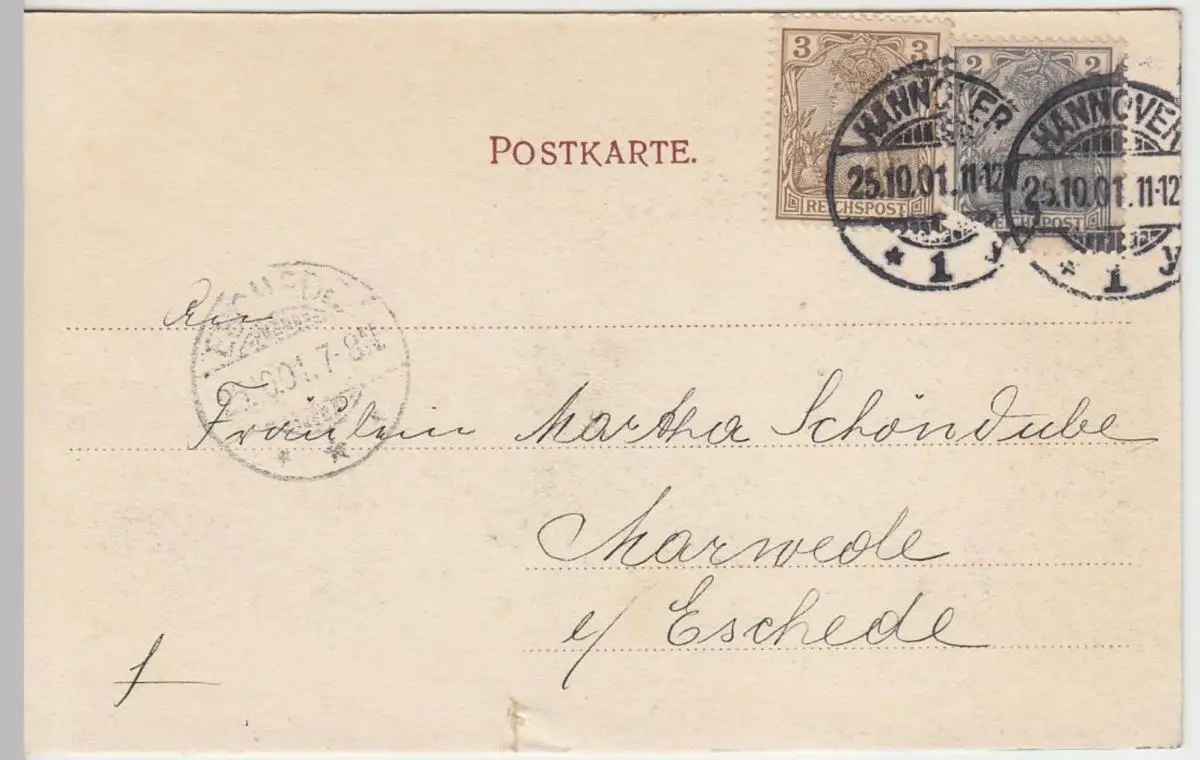 3 3 2
REICHSPOST REICHSPOST
HANNOVER
25.10.01. 11-12
* 1 y
HANNOVER
25.10.01. 11-12
* 1 y
POSTKARTE.
ESCHEDE
.10.01. 7-8N
* *
An
Fräulein Martha Schöndube
Marwede
e/ Eschede